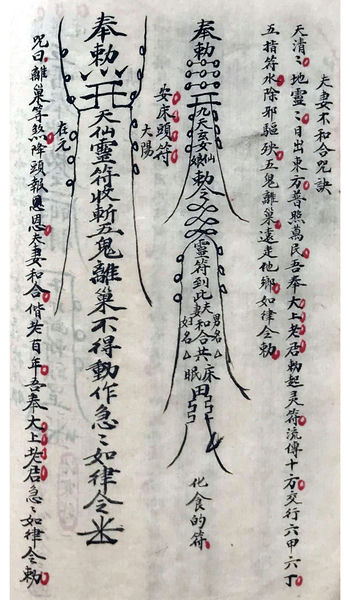 夫妻不和合咒訣
天清〻地靈〻日出東方普照萬民吾奉太上老君勅起灵符流傳十方交行六甲六丁
五指符水除邪驅殃五鬼離巢遠走他鄉如律令勅
奉勅
九天玄女仙娘勅令
靈符到此妻夫和合共床眠
男名
妇名
化食的符
安床頭符
奉勅
天仙靈符收斬五鬼離巢不得動作急〻如律令
太陽
在元
咒曰離巢等煞降頭報恩恩夫妻和合偕老百年吾奉太上老君急〻如律令勅